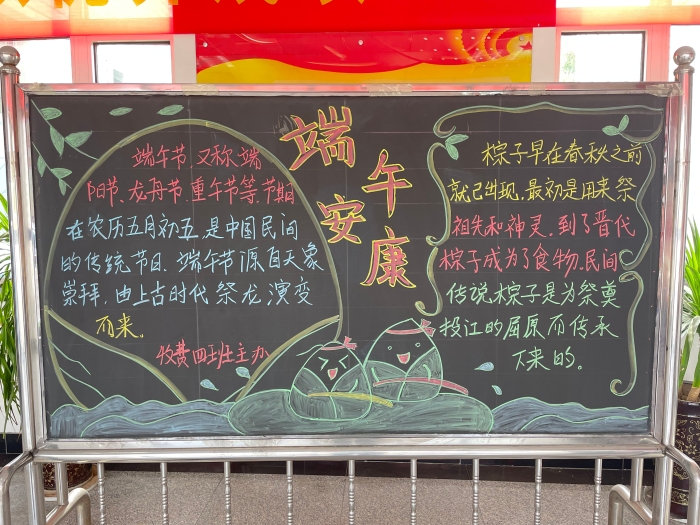 端午安康
端午节又称端
阳节、龙舟节、重午节等,节期
在农历五月初五,是中国民间
的传统节日。端午节源自天象
崇拜,由上古时代祭龙演变
而来。
收费四班主办
棕子早在春秋之前
就已出现,最初是用来祭
祖先和神灵,到了晋代
棕子成为了食物,民间
传说,棕子是为祭奠
投江的屈原而传承
下来的。